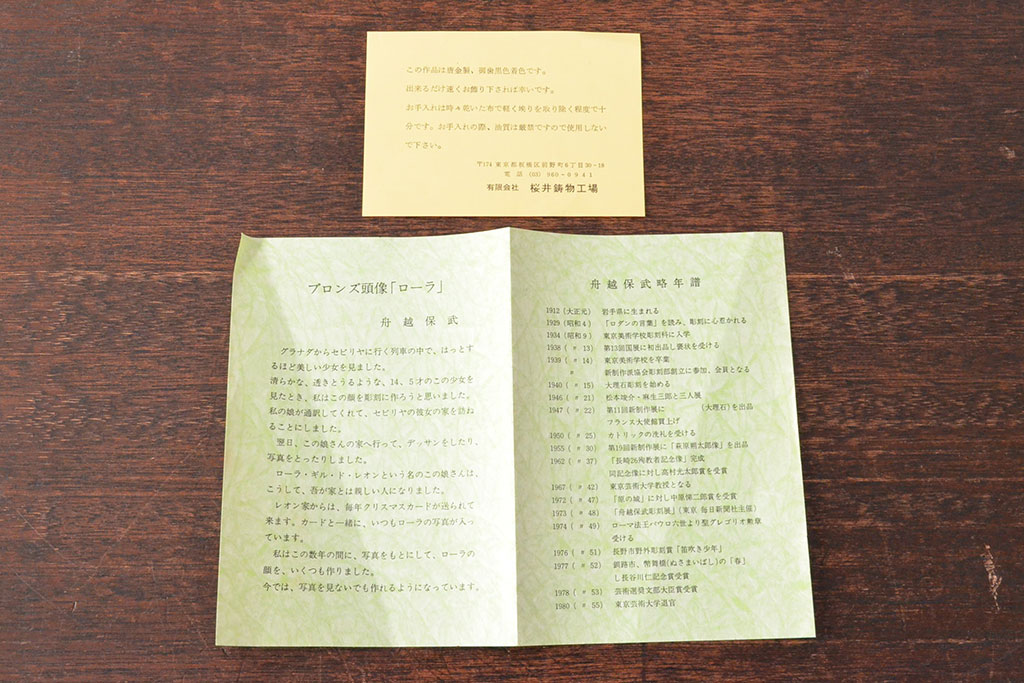 この作品は唐金製、斑歯黒色着色です。
出来るだけ速くお飾り下されば幸いです。
お手入れは時々乾いた布で軽く埃りを取り除く程度で十
分です。お手入れの際、油質は厳禁ですので使用しない
で下さい。
〒174 東京都板橋区前野町6丁目30−18
電話 (03) 960−0941
有限会社 桜井鋳物工場
ブロンズ頭像「ローラ」
舟越保武
グラナダからセビリヤに行く列車の中で、はっとす
るほど美しい少女を見ました。
清らかな、透きとうるような、14、5才のこの少女を
見たとき、私はこの顔を彫刻に作ろうと思いました。
私の娘が通訳してくれて、セビリヤの彼女の家を訪ね
ることにしました。
翌日、この娘さんの家へ行って、デッサンをしたり、
写真をとったりしました。
ローラ・ギル・ド・レオンという名のこの娘さんは、
こうして、吾が家とは親しい人になりました。
レオン家からは、毎年クリスマスカードが送られて
来ます。カードと一緒に、いつもローラの写真が入っ
ています。
私はこの数年の間に、写真をもとにして、ローラの
顔を、いくつも作りました。
今では、写真を見ないでも作れるようになっています。
舟越保武略年譜
1912(大正元) 岩手県に生まれる
1929(昭和4) 「ロダンの言葉」を読み、彫刻に心惹かれる
1934(昭和9) 東京美術学校彫刻科に入学
1938(〃13) 第13回国展に初出品し褒状を受ける
1939(〃14) 東京美術学校を卒業
〃 新制作派協会彫刻部創立に参加、会員となる
1940(〃15) 大理石彫刻を始める
1946(〃21) 松本竣介・麻生三郎と三人展
1947(〃22) 第11回新制作展に (大理石)を出品
フランス大使館買上げ
1950(〃25) カトリックの洗礼を受ける
1955(〃30) 第19回新制作展に「萩原朔太郎像」を出品
1962(〃37) 「長崎26殉教者記念像」完成
同記念像に対し高村光太郎賞を受賞
1967(〃42) 東京芸術大学教授となる
1972(〃47) 「原の城」に対し中原悌二郎賞を受賞
1973(〃48) 「舟越保武彫刻展」(東京 毎日新聞社主催)
1974(〃49) ローマ法王パウロ六世より聖グレゴリオ勲章
受ける
1976(〃51) 長野市野外彫刻賞「笛吹き少年」
1977(〃52) 釧路市、幣舞橋(ぬさまいばし)の「春」
し長谷川仁記念賞受賞
1978(〃53) 芸術選奨文部大臣賞受賞
1980(〃55) 東京芸術大学退官